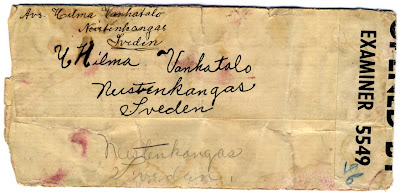 Avs. Hilma Vanhatalo
Neistenkangas
Sveden
Hilma Vanhatalo
Neistenkangas
Sveden
Neistenkangas
Sveden
OPENED BY
EXAMINER 5549